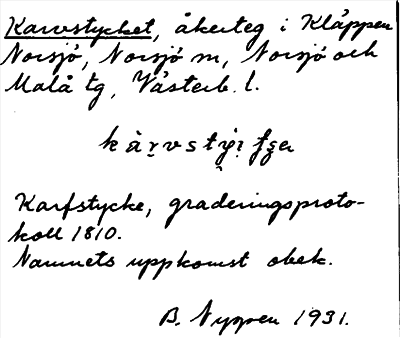 Karvstycket, åkerteg i Kläppen
Norsjö, Norsjö sn, Norsjö och
Malå tg, Västerb. l.
Karfstycke, graderingsproto-
koll 1810.
Namnets uppkomst obek.
B. Nyppen 1931.